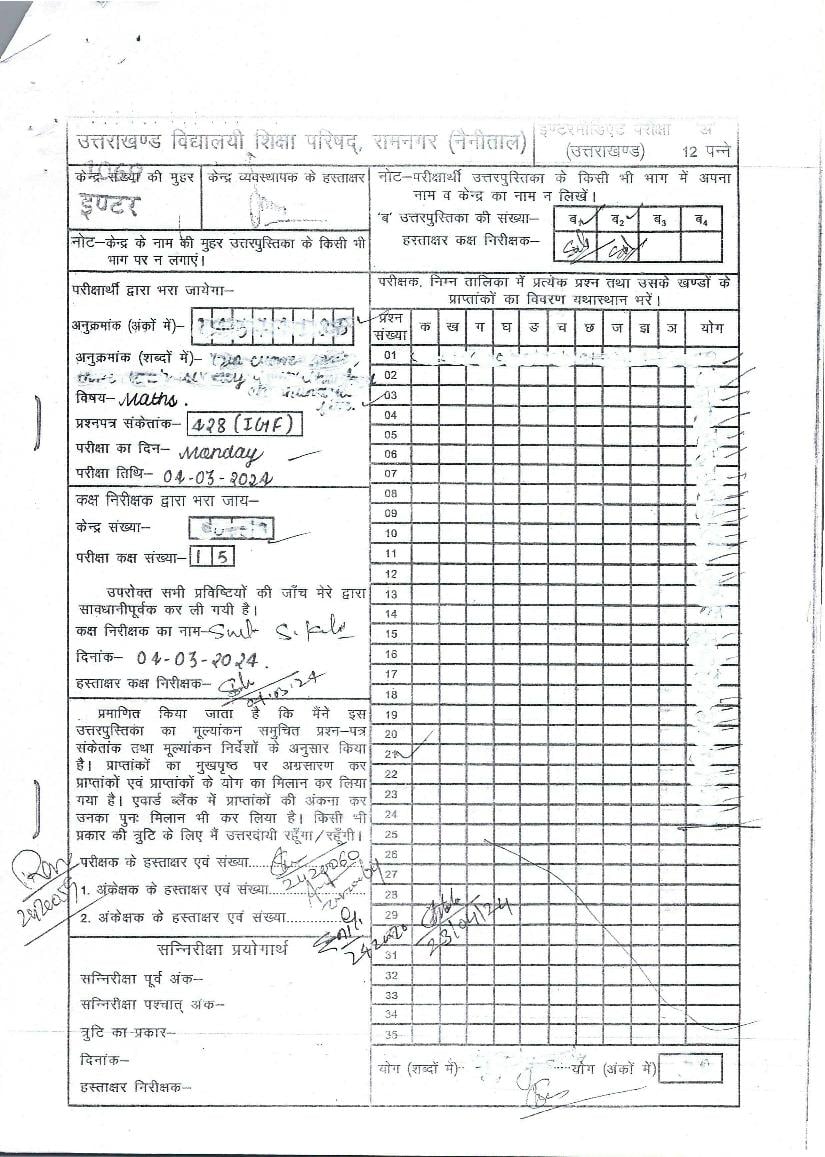 उत्तराखण्ड विद्यालयी शिक्षा परिषद्, रामनगर (नैनीताल)
इण्टरमीडिएट परीक्षा अ
(उत्तराखण्ड) 12 पन्ने
केन्द्र संख्या की मुहर
इण्टर
केन्द्र व्यवस्थापक के हस्ताक्षर
नोट–परीक्षार्थी उत्तरपुस्तिका के किसी भी भाग में अपना
नाम व केन्द्र का नाम न लिखें।
'ब' उत्तरपुस्तिका की संख्या– ब1 ब2 ब3 ब4
हस्ताक्षर कक्ष निरीक्षक–
नोट–केन्द्र के नाम की मुहर उत्तरपुस्तिका के किसी भी
भाग पर न लगाएं।
परीक्षार्थी द्वारा भरा जायेगा–
अनुक्रमांक (अंकों में)–
अनुक्रमांक (शब्दों में)–
विषय– Maths.
प्रश्नपत्र संकेतांक– 428 (IGF)
परीक्षा का दिन– Monday
परीक्षा तिथि– 04-03-2024
कक्ष निरीक्षक द्वारा भरा जाय–
केन्द्र संख्या–
परीक्षा कक्ष संख्या– 15
उपरोक्त सभी प्रविष्टियों की जाँच मेरे द्वारा
सावधानीपूर्वक कर ली गयी है।
कक्ष निरीक्षक का नाम–
दिनांक– 04-03-2024.
हस्ताक्षर कक्ष निरीक्षक–
04.03.24
प्रमाणित किया जाता है कि मैंने इस
उत्तरपुस्तिका का मूल्यांकन समुचित प्रश्न–पत्र
संकेतांक तथा मूल्यांकन निर्देशों के अनुसार किया
है। प्राप्तांकों का मुखपृष्ठ पर अग्रसारण कर
प्राप्तांकों एवं प्राप्तांकों के योग का मिलान कर लिया
गया है। एवार्ड ब्लैंक में प्राप्तांकों की अंकना कर
उनका पुनः मिलान भी कर लिया है। किसी भी
प्रकार की त्रुटि के लिए मैं उत्तरदायी रहूँगा/रहूँगी।
परीक्षक के हस्ताक्षर एवं संख्या......
2420060
1. अंकेक्षक के हस्ताक्षर एवं संख्या......
2. अंकेक्षक के हस्ताक्षर एवं संख्या......
सन्निरीक्षा प्रयोगार्थ
सन्निरीक्षा पूर्व अंक–
सन्निरीक्षा पश्चात् अंक–
त्रुटि का प्रकार–
दिनांक–
हस्ताक्षर निरीक्षक–
परीक्षक, निम्न तालिका में प्रत्येक प्रश्न तथा उसके खण्डों के
प्राप्तांकों का विवरण यथास्थान भरें।
प्रश्न संख्या क ख ग घ ङ च छ ज झ ञ योग
01
02
03
04
05
06
07
08
09
10
11
12
13
14
15
16
17
18
19
20
21
22
23
24
25
26
27
28
29
31
32
33
34
35
23/04/24
योग (शब्दों में) योग (अंकों में)